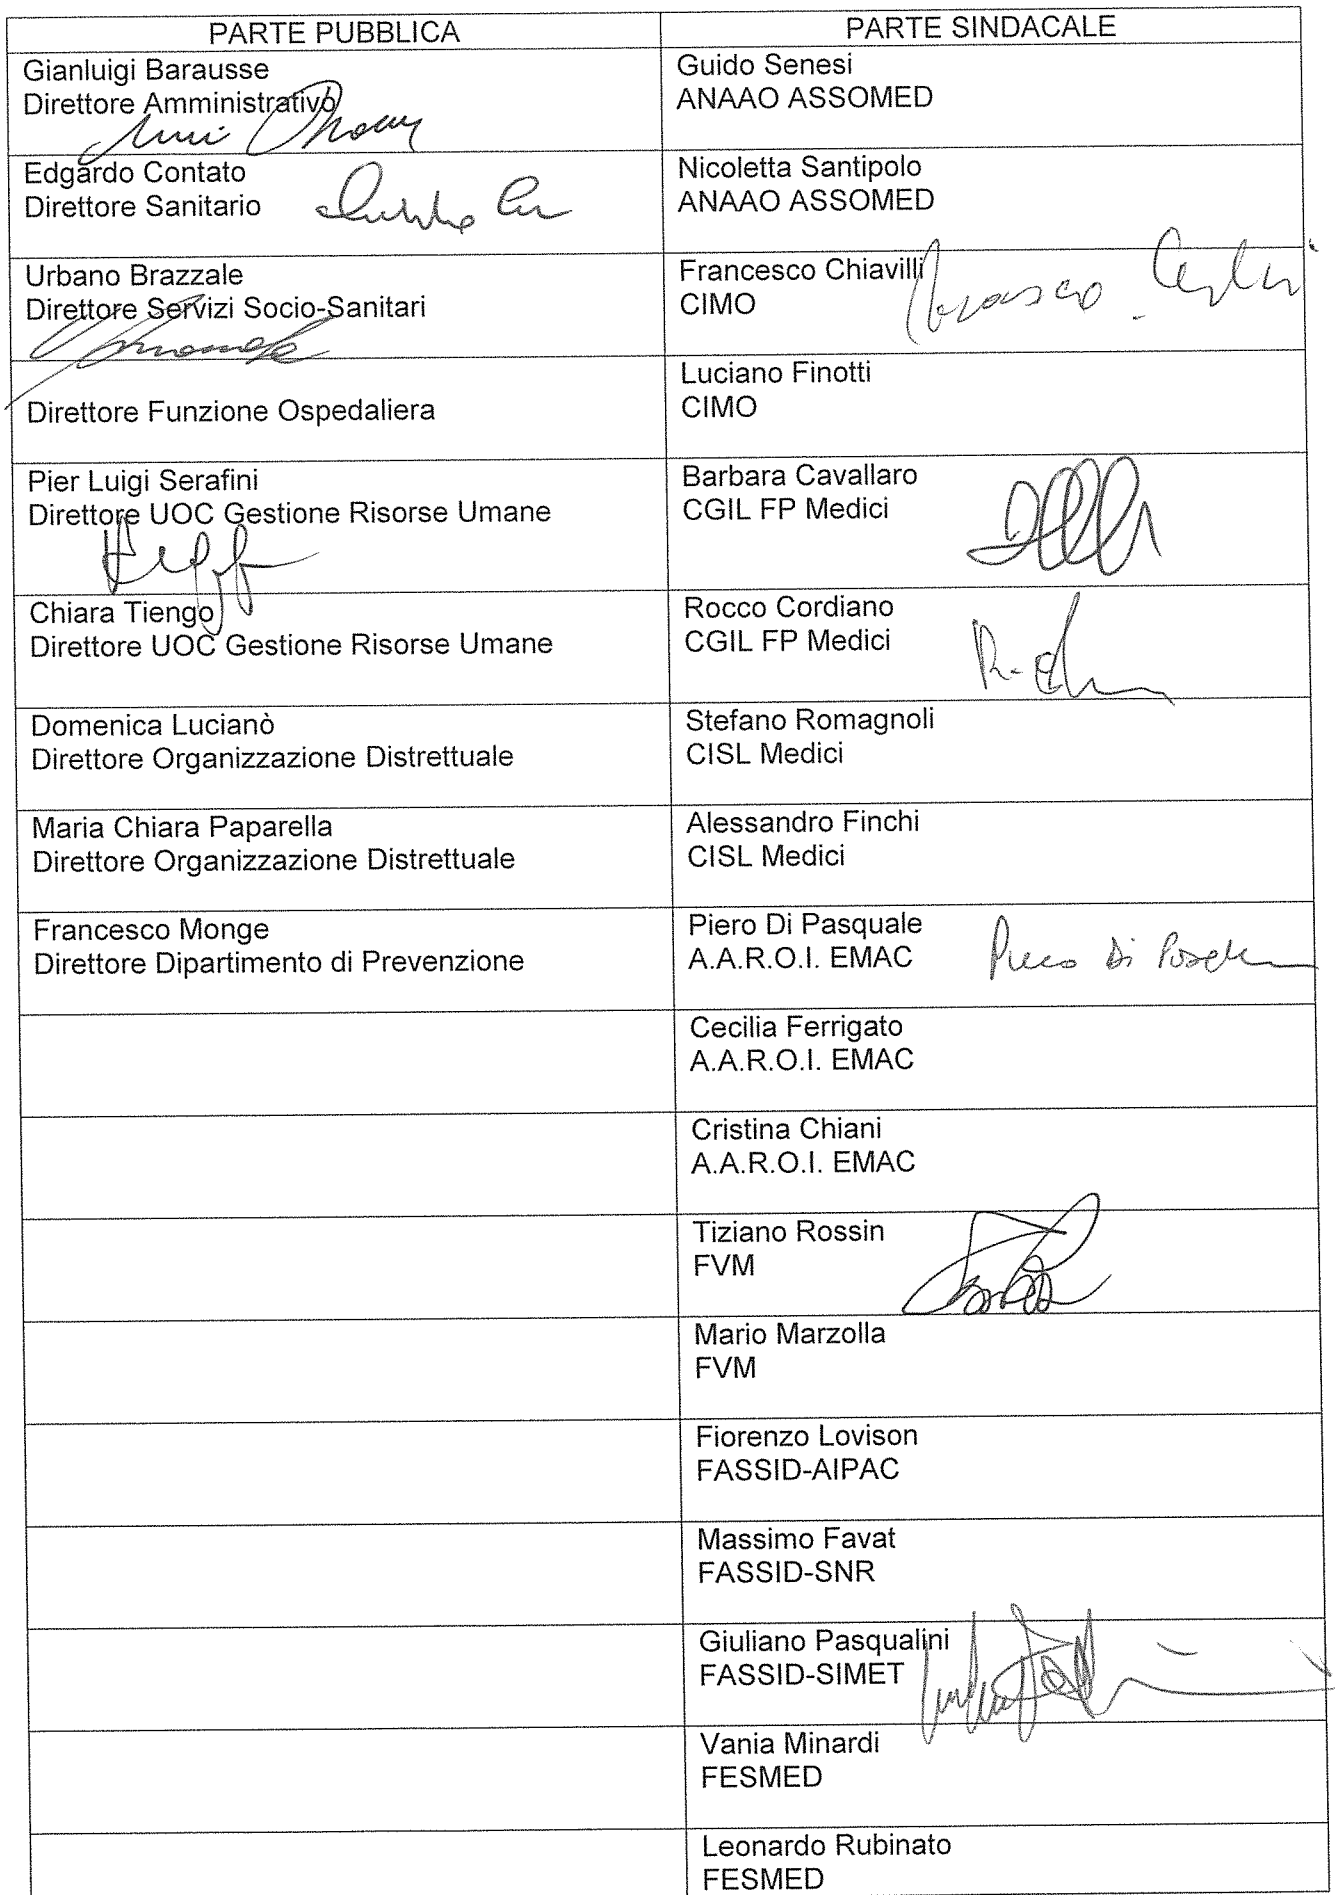 PARTE PUBBLICA
PARTE SINDACALE
Gianluigi Barausse
Direttore Amministrativo
Guido Senesi
ANAAO ASSOMED
Edgardo Contato
Direttore Sanitario
Nicoletta Santipolo
ANAAO ASSOMED
Urbano Brazzale
Direttore Servizi Socio-Sanitari
Francesco Chiavilli
CIMO
Direttore Funzione Ospedaliera
Luciano Finotti
CIMO
Pier Luigi Serafini
Direttore UOC Gestione Risorse Umane
Barbara Cavallaro
CGIL FP Medici
Chiara Tiengo
Direttore UOC Gestione Risorse Umane
Rocco Cordiano
CGIL FP Medici
Domenica Lucianò
Direttore Organizzazione Distrettuale
Stefano Romagnoli
CISL Medici
Maria Chiara Paparella
Direttore Organizzazione Distrettuale
Alessandro Finchi
CISL Medici
Francesco Monge
Direttore Dipartimento di Prevenzione
Piero Di Pasquale
A.A.R.O.I. EMAC
Cecilia Ferrigato
A.A.R.O.I. EMAC
Cristina Chiani
A.A.R.O.I. EMAC
Tiziano Rossin
FVM
Mario Marzolla
FVM
Fiorenzo Lovison
FASSID-AIPAC
Massimo Favat
FASSID-SNR
Giuliano Pasqualini
FASSID-SIMET
Vania Minardi
FESMED
Leonardo Rubinato
FESMED